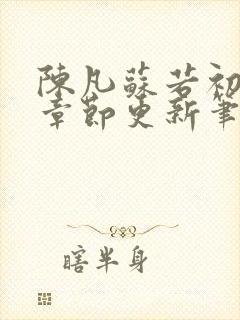 陳凡蘇若初
章節更新筆
瞎半身